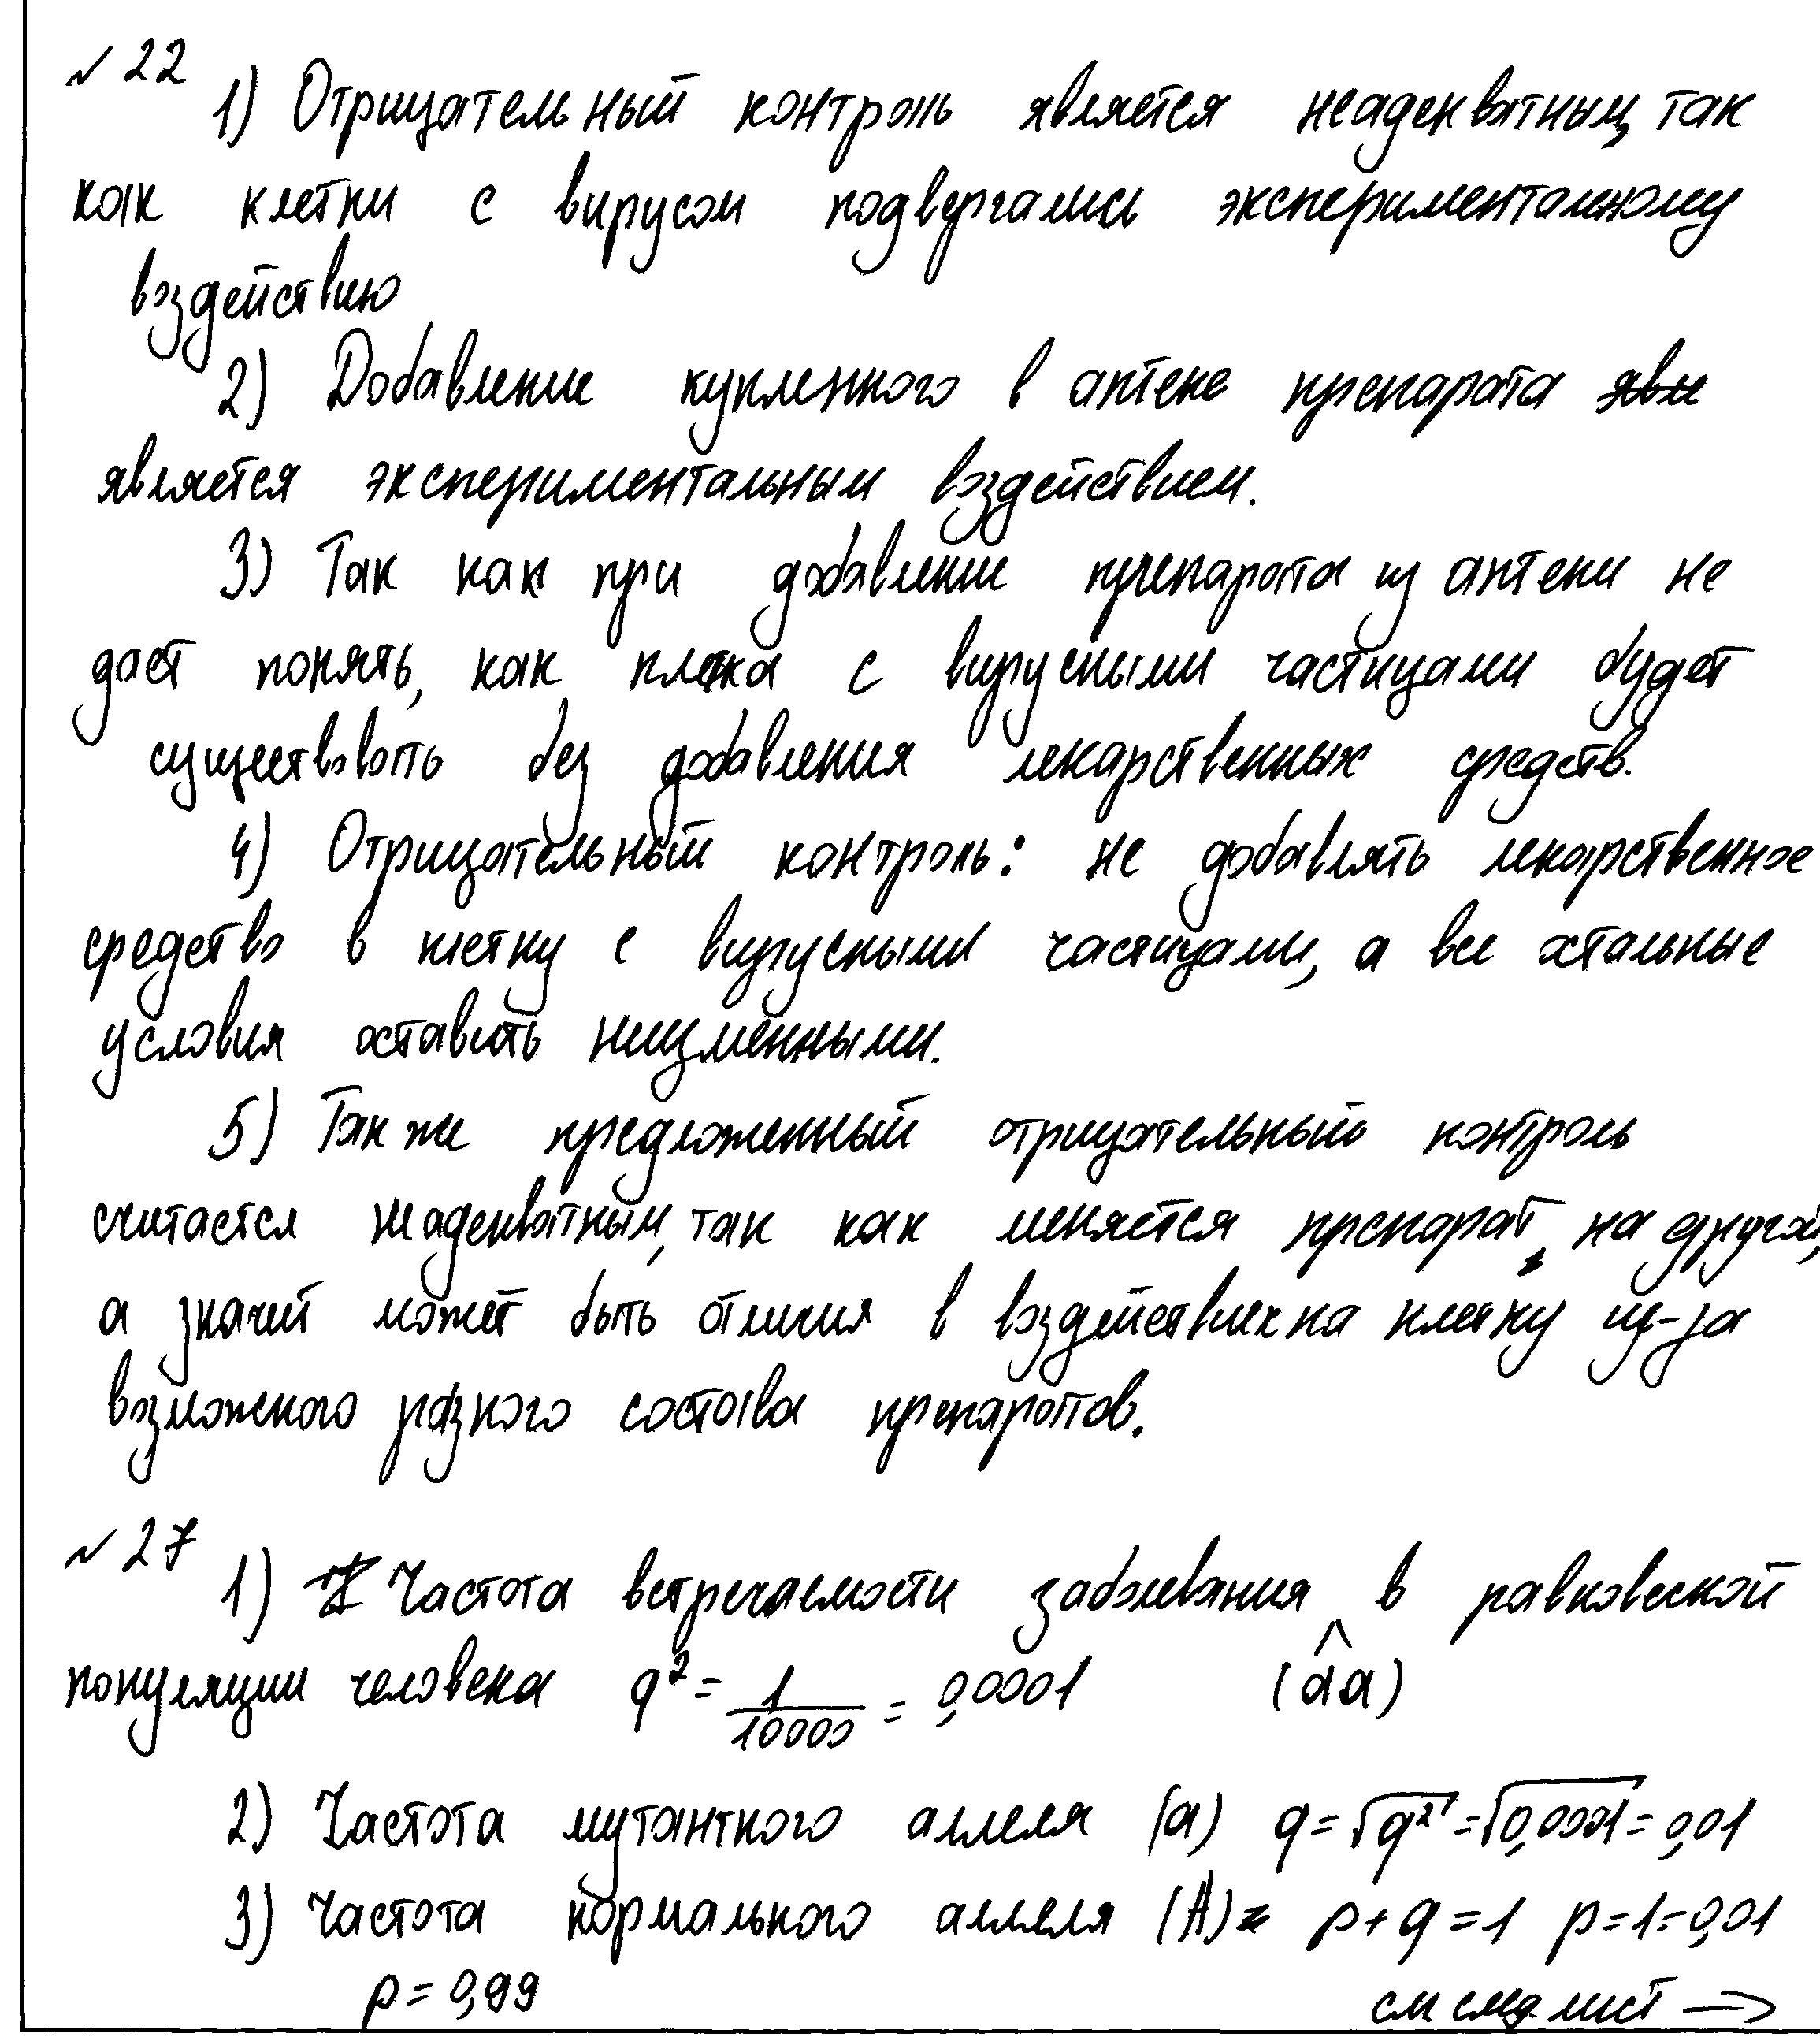 № 22
1) Отрицательный контроль является неадекватным, так
как клетки с вирусом подвергались экспериментальному
воздействию
2) Добавление купленного в аптеке препарата явл
является экспериментальным воздействием.
3) Так как при добавление препарата из аптеки не
даст понять, как клетка с вирусными частицами будет
существовать без добавления лекарственных средств.
4) Отрицательный контроль: не добавлять лекарственное
средство в клетку с вирусными частицами, а все остальные
условия оставить неизменными.
5) Также предложенный отрицательный контроль
считается неадекватным, так как меняется препарат на другой,
а значит может быть отличия в воздействиях на клетку из-за
возможного разного состава препаратов.
№ 27
1) Частота встречаемости заболевания в равновесной
популяции человека q² = 1/10000 = 0,0001 (aa)
2) Частота мутантного аллеля (a) q = √q² = √0,0001 = 0,01
3) Частота нормального аллеля (A) p + q = 1 p = 1 - 0,01
p = 0,99
см след. лист →